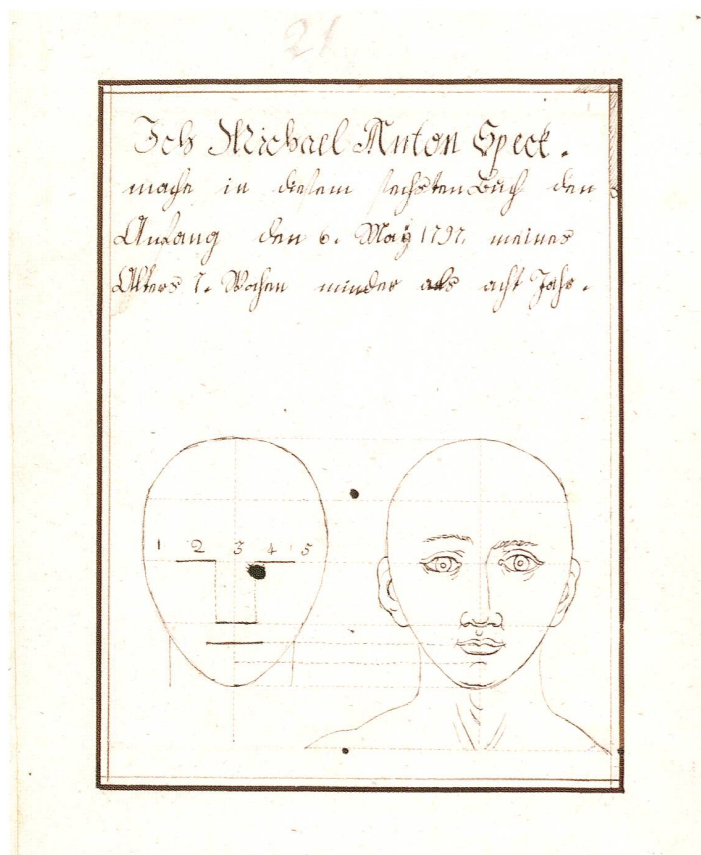 21
Ich Michael Anton Speck.
mache in diesem sechsten Buch den
Anfang den 6. May 1797. meines
Alters 7. Wochen minder als acht Jahr.
1 2 3 4 5